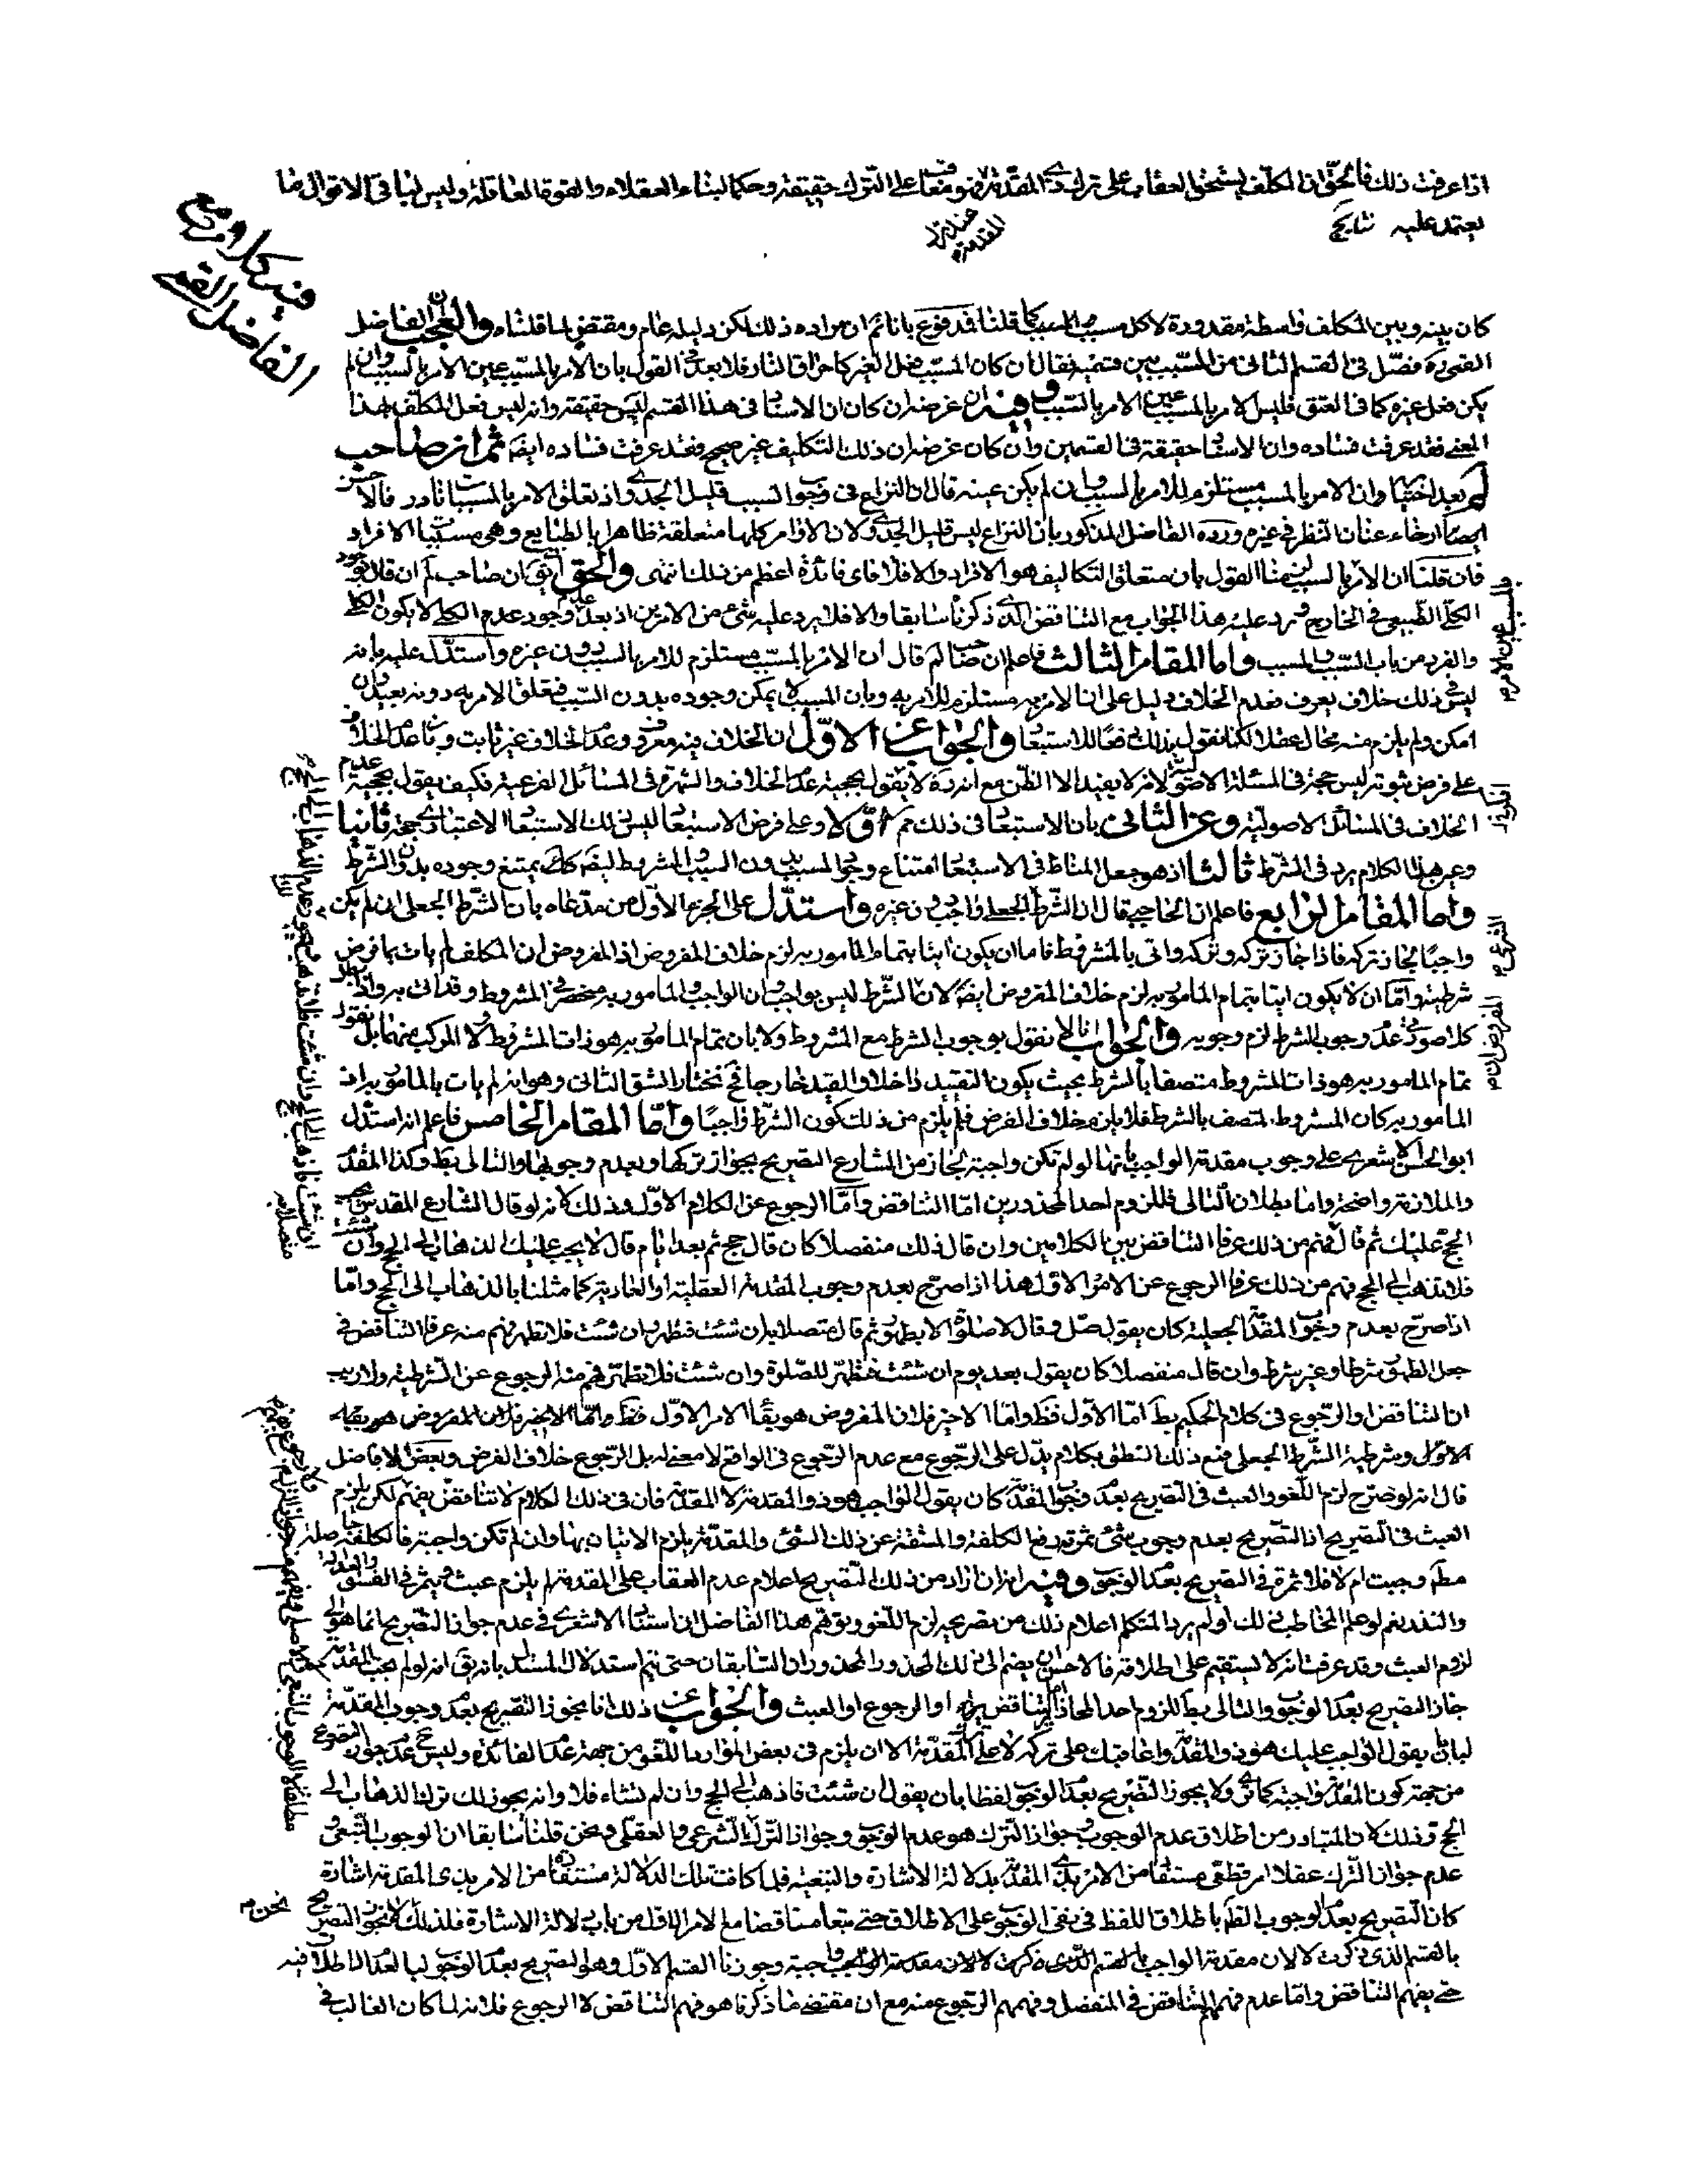 اذا عرفت ذلك فالحق ان المكلف يستحق العقاب على ترك ذى المقدمة على الترك حقيقة وحكما لبناء العقلاء والقوة العاقلة وليس لباقى الاقوال ما
يعتمد عليه نتايج
فيه كلام مع
الفاضل القمى
كان بينه وبين المكلف واسطة مقدورة لا كل سبب ومسبب كما قلنا فمدفوع بانا نعلم ان مراده ذلك لكن دليله عام ومقتض لما قلناه والعجب ان الفاضل
القمى ره فصّل فى القسم الثانى من المسببين فقال ان كان المسبب فعل الغير كاحراق النار فلا بعد فى القول بان الامر بالمسبب عين الامر بالسبب وان لم
يكن فعل غيره كما فى العتق فليس الامر بالمسبب عين الامر بالسبب وفيه ان غرضه ان كان ان الاسناد فى هذا القسم ليس حقيقة وانه ليس فعل المكلف بهذا
المعنى فقد عرفت فساده وان الاسناد حقيقة فى القسمين وان كان غرضه ان ذلك التكليف غير صحيح فقد عرفت فساده ايضا ثم ان صاحب
لم بعد اختيار ان الامر بالمسبب مستلزم للامر بالسبب وان لم يكن عينه قال ان النزاع فى وجوب السبب قليل الجدوى اذ تعلق الامر بالمسببات نادر فالاحسن
ارخاء عنان النظر فى غيره ورده الفاضل المذكور بان النزاع ليس قليل الجدوى لان الاوامر كلها متعلقة ظاهرا بالطبايع وهى مسببات الافراد
فان قلنا ان الامر بالسبب القول بان متعلق التكاليف هو الافراد والا فلا فاى فائدة اعظم من ذلك انتهى والحق ان صاحب لم ان قال بوجود
الكلى الطبيعى فى الخارج يرد عليه هذا الجواب مع التناقض الذى ذكرنا سابقا والا فلا يرد عليه شئ من الامرين اذ بعد عدم وجود الكلى لا يكون الكلى
والفرد من باب السبب والمسبب واما المقام الثالث فاعلم ان صاحب لم قال ان الامر بالمسبب مستلزم للامر بالسبب دون غيره واستدل عليه بانه
ليس فى ذلك خلاف يعرف فعدم الخلاف دليل على ان الامر به مستلزم للامر به وبان المسبب لا يمكن وجوده بدون السبب فتعلق الامر به دونه بعيد وان
امكن ولم يلزم منه محال عقلا لكنا نقول بذلك دفعا للاستبعاد والجواب عن الاول ان الخلاف فيه معروف وعدم الخلاف غير ثابت وبان عدم الخلاف
على فرض ثبوته ليس حجة فى المسئلة الاصولية لانه لا يفيد الا الظن مع انه ره لا يقول بحجية عدم الخلاف والشهرة فى المسائل الفرعية فكيف يقول بحجية عدم
الخلاف فى المسائل الاصولية وعن الثانى بان الاستبعاد فى ذلك مم اولا وعلى فرض الاستبعاد ليس ذلك الاستبعاد الاعتبارى حجة ثانيا
الكلام يرد فى الشرط ثالثا اذ هو جعل المناط فى الاستبعاد امتناع وجود المسبب بدون السبب والمشروط ايضا كك يمتنع وجوده بدون الشرط
واما المقام الرابع فاعلم ان الحاجبى قال ان الشرط الجعلى واجب دون غيره واستدل على الجزء الاول من مدعاه بان الشرط الجعلى ان لم يكن
واجبا لجاز تركه فاذا جاز تركه وتركه واتى بالمشروط فاما ان يكون اتيا بتمام المامور به لزم خلاف المفروض اذ المفروض ان المكلف لم يات بما فرض
شرطيته واما ان لا يكون اتيا بتمام المامور به لزم خلاف المفروض ايضا لان الشرط ليس بواجب وان الواجب والمامور به منحصر فى المشروط وقد اتى به واذا بطل
كلا صورتى عدم وجوب الشرط لزم وجوبه والجواب انا لا نقول بوجوب الشرط مع المشروط ولا بان تمام المامور به هو ذات المشروط ولا المركب منهما بل نقول
تمام المامور به هو ذات المشروط متصفا بالشرط بحيث يكون التقييد داخلا والقيد خارجا فح نختار الشق الثانى وهو انه لم يات بالمامور به اذ
المامور به كان المشروط المتصف بالشرط فلا يلزم خلاف الفرض فلم يلزم من ذلك كون الشرط واجبا واما المقام الخامس فاعلم انه استدل
ابو الحسن الاشعرى على وجوب مقدمة الواجب بانها لو لم تكن واجبة لجاز من الشارع التصريح بجواز تركها وبعدم وجوبها والتالى بط وكذا المقدم
والملازمة واضحة واما بطلان التالى فللزوم احد المحذورين اما التناقض واما الرجوع عن الكلام الاول وذلك لانه لو قال الشارع المقدس يجب
الحج عليك ثم قال فهم من ذلك عرفا التناقض بين الكلامين وان قال ذلك منفصلا كان قال حج ثم بعد ايام قال لا يجب عليك الذهاب الى الحج وان شئت
فلا تذهب الى الحج فهم من ذلك عرفا الرجوع عن الامر الاول هذا اذا صرح بعدم وجوب المقدمة العقلية او العادية كما مثلنا بالذهاب الى الحج واما
اذا صرح بعدم وجوب المقدمة الجعلية كان يقول صل وقال لا صلوة الا بطهور ثم قال متصلا به ان شئت فتطهر وان شئت فلا تطهر فهم منه عرفا التناقض فى
جعل الطهور شرطا وغير شرط وان قال منفصلا كان يقول بعد يوم ان شئت فتطهر للصلوة وان شئت فلا تطهر فهم منه الرجوع عن الشرطية ولا ريب
ان التناقض والرجوع فى كلام الحكيم بط اما الاول فظ واما الاخير فلان المفروض هو بقاء الامر الاول
الاول وشرطية الشرط الجعلى فمع ذلك النطق بكلام يدل على الرجوع مع عدم الرجوع فى الواقع لا معنى له بل الرجوع خلاف الفرض وبعض الافاضل
قال انه لو صرح لزم اللغو والعبث فى التصريح بعدم وجوب المقدمة كان يقول الواجب هو ذو المقدمة لا المقدمة فان فى ذلك الكلام لا تناقض يفهم لكن يلزم
العبث فى التصريح اذ التصريح بعدم وجوب شئ ثمرته رفع الكلفة والمشقة عن ذلك الشئ والمقدمة يلزم الاتيان بها وان لم تكن واجبة فالكلفة حاصلة
مط وجبت ام لا فلا ثمرة فى التصريح بعدم الوجوب وفيه انه ان اراد من ذلك التصريح اعلام عدم العقاب على المقدمة لم يلزم عبث ويثمر فى الفسق والعدالة
والنذر نعم لو علم المخاطب ذلك او لم يرد المتكلم اعلام ذلك من تصريحه لزم اللغو وتوهم هذا الفاضل ان استناد الاشعرى فى عدم جواز التصريح انما هو الى
لزوم العبث وقد عرفت انه لا يستقيم على اطلاقه فالاحسن ان يضم الى ذلك المحذور المحذوران السابقان حتى يتم استدلال المستدل بانه لو لم يجب المقدمة
جاز التصريح بعدم الوجوب والتالى بط للزوم احد المحاذير التناقض او الرجوع او العبث والجواب عن ذلك انا نجوز التصريح بعدم وجوب المقدمة
لبا بان يقول الواجب عليك هو ذو المقدمة واعاقبك على تركه لا على المقدمة الا ان يلزم فى بعض الموارد اللغو من جهة عدم الفائدة وليس ح عدم جواز التصريح
من جهة كون المقدمة واجبة كما ترى ولا يجوز التصريح بعدم الوجوب لفظا بان يقول ان شئت فاذهب الى الحج وان لم تشاء فلا وانه يجوز لك ترك الذهاب الى
الحج وذلك لان المتبادر من اطلاق عدم الوجوب وجواز الترك هو عدم الوجوب وجواز الترك الشرعى والعقلى ونحن قلنا سابقا ان الوجوب التبعى
عدم جواز الترك عقلا امر قطعى مستفاد من الامر بذى المقدمة بدلالة الاشارة والتبعية فلما كانت تلك الدلالة مستفادة من الامر بذى المقدمة اشارة
كان التصريح بعدم الوجوب باطلاق اللفظ فى نفى الوجوب على الاطلاق حتى تبعا مناقضا مع الامر الاول من باب دلالة الاشارة فلذلك لا نجوز التصريح
بالقسم الذى ذكرت لا لان مقدمة الواجب واجبة وجوزنا القسم الاول وهو التصريح بعدم الوجوب لبا لعدم الاطلاق فيه
حتى يفهم التناقض واما عدم فهمهم التناقض فى المنفصل وفهمهم الرجوع منه مع ان مقتضى ما ذكرنا هو فهم التناقض لا الرجوع فلانه لما كان الغالب فى